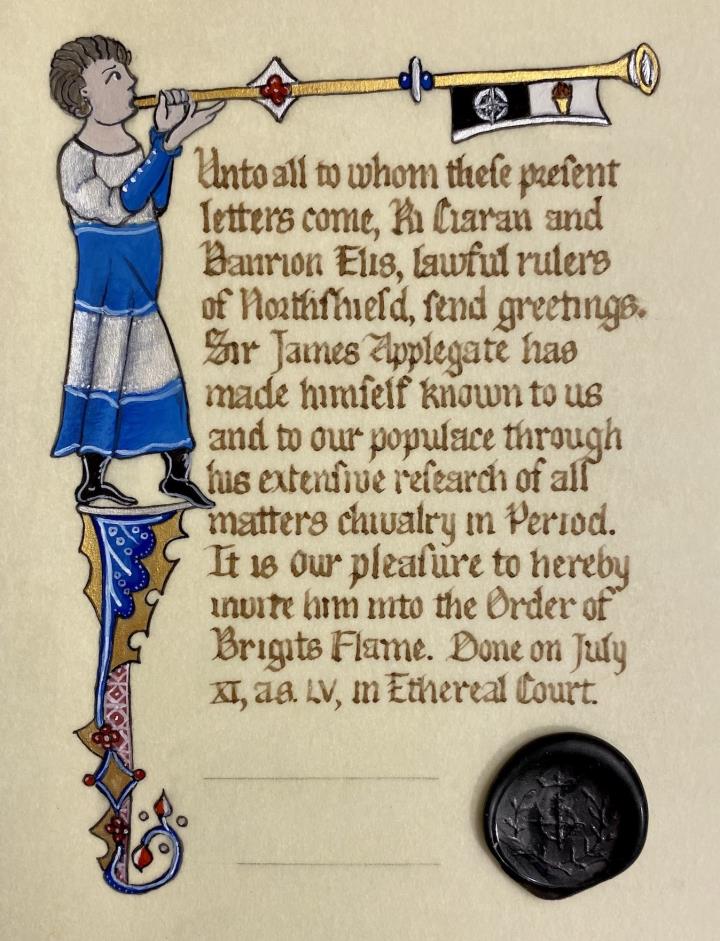 Unto all to whom theſe preſent
letters come, Ri Ciaran and
Banrion Elis, lawful rulers
of Northſhield, ſend greetings.
Sir James Applegate has
made himſelf known to us
and to our populace through
his extenſive reſearch of all
matters chivalry in Period.
It is our pleaſure to hereby
invite him into the Order of
Brigits Flame. Done on July
XI, a.s. LV, in Ethereal Court.